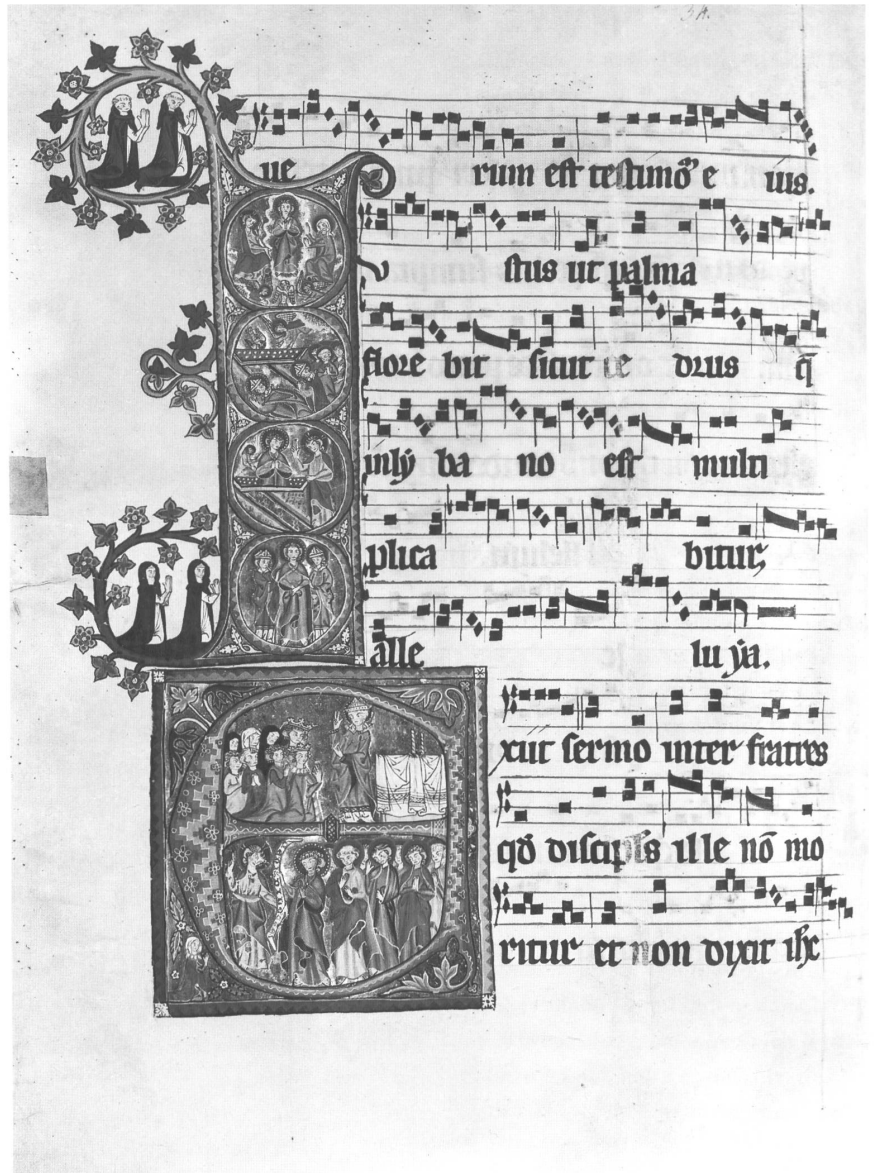 ue rum est testimōʳ e ius.
I u stus ut palma
flore bit sicut ce drus q̄
in ly ba no est multi
plica bitur,
alle lu ẏa.
E xiit sermo inter fratres
qđ discipl's ille nō mo
ritur et non dixit ihc